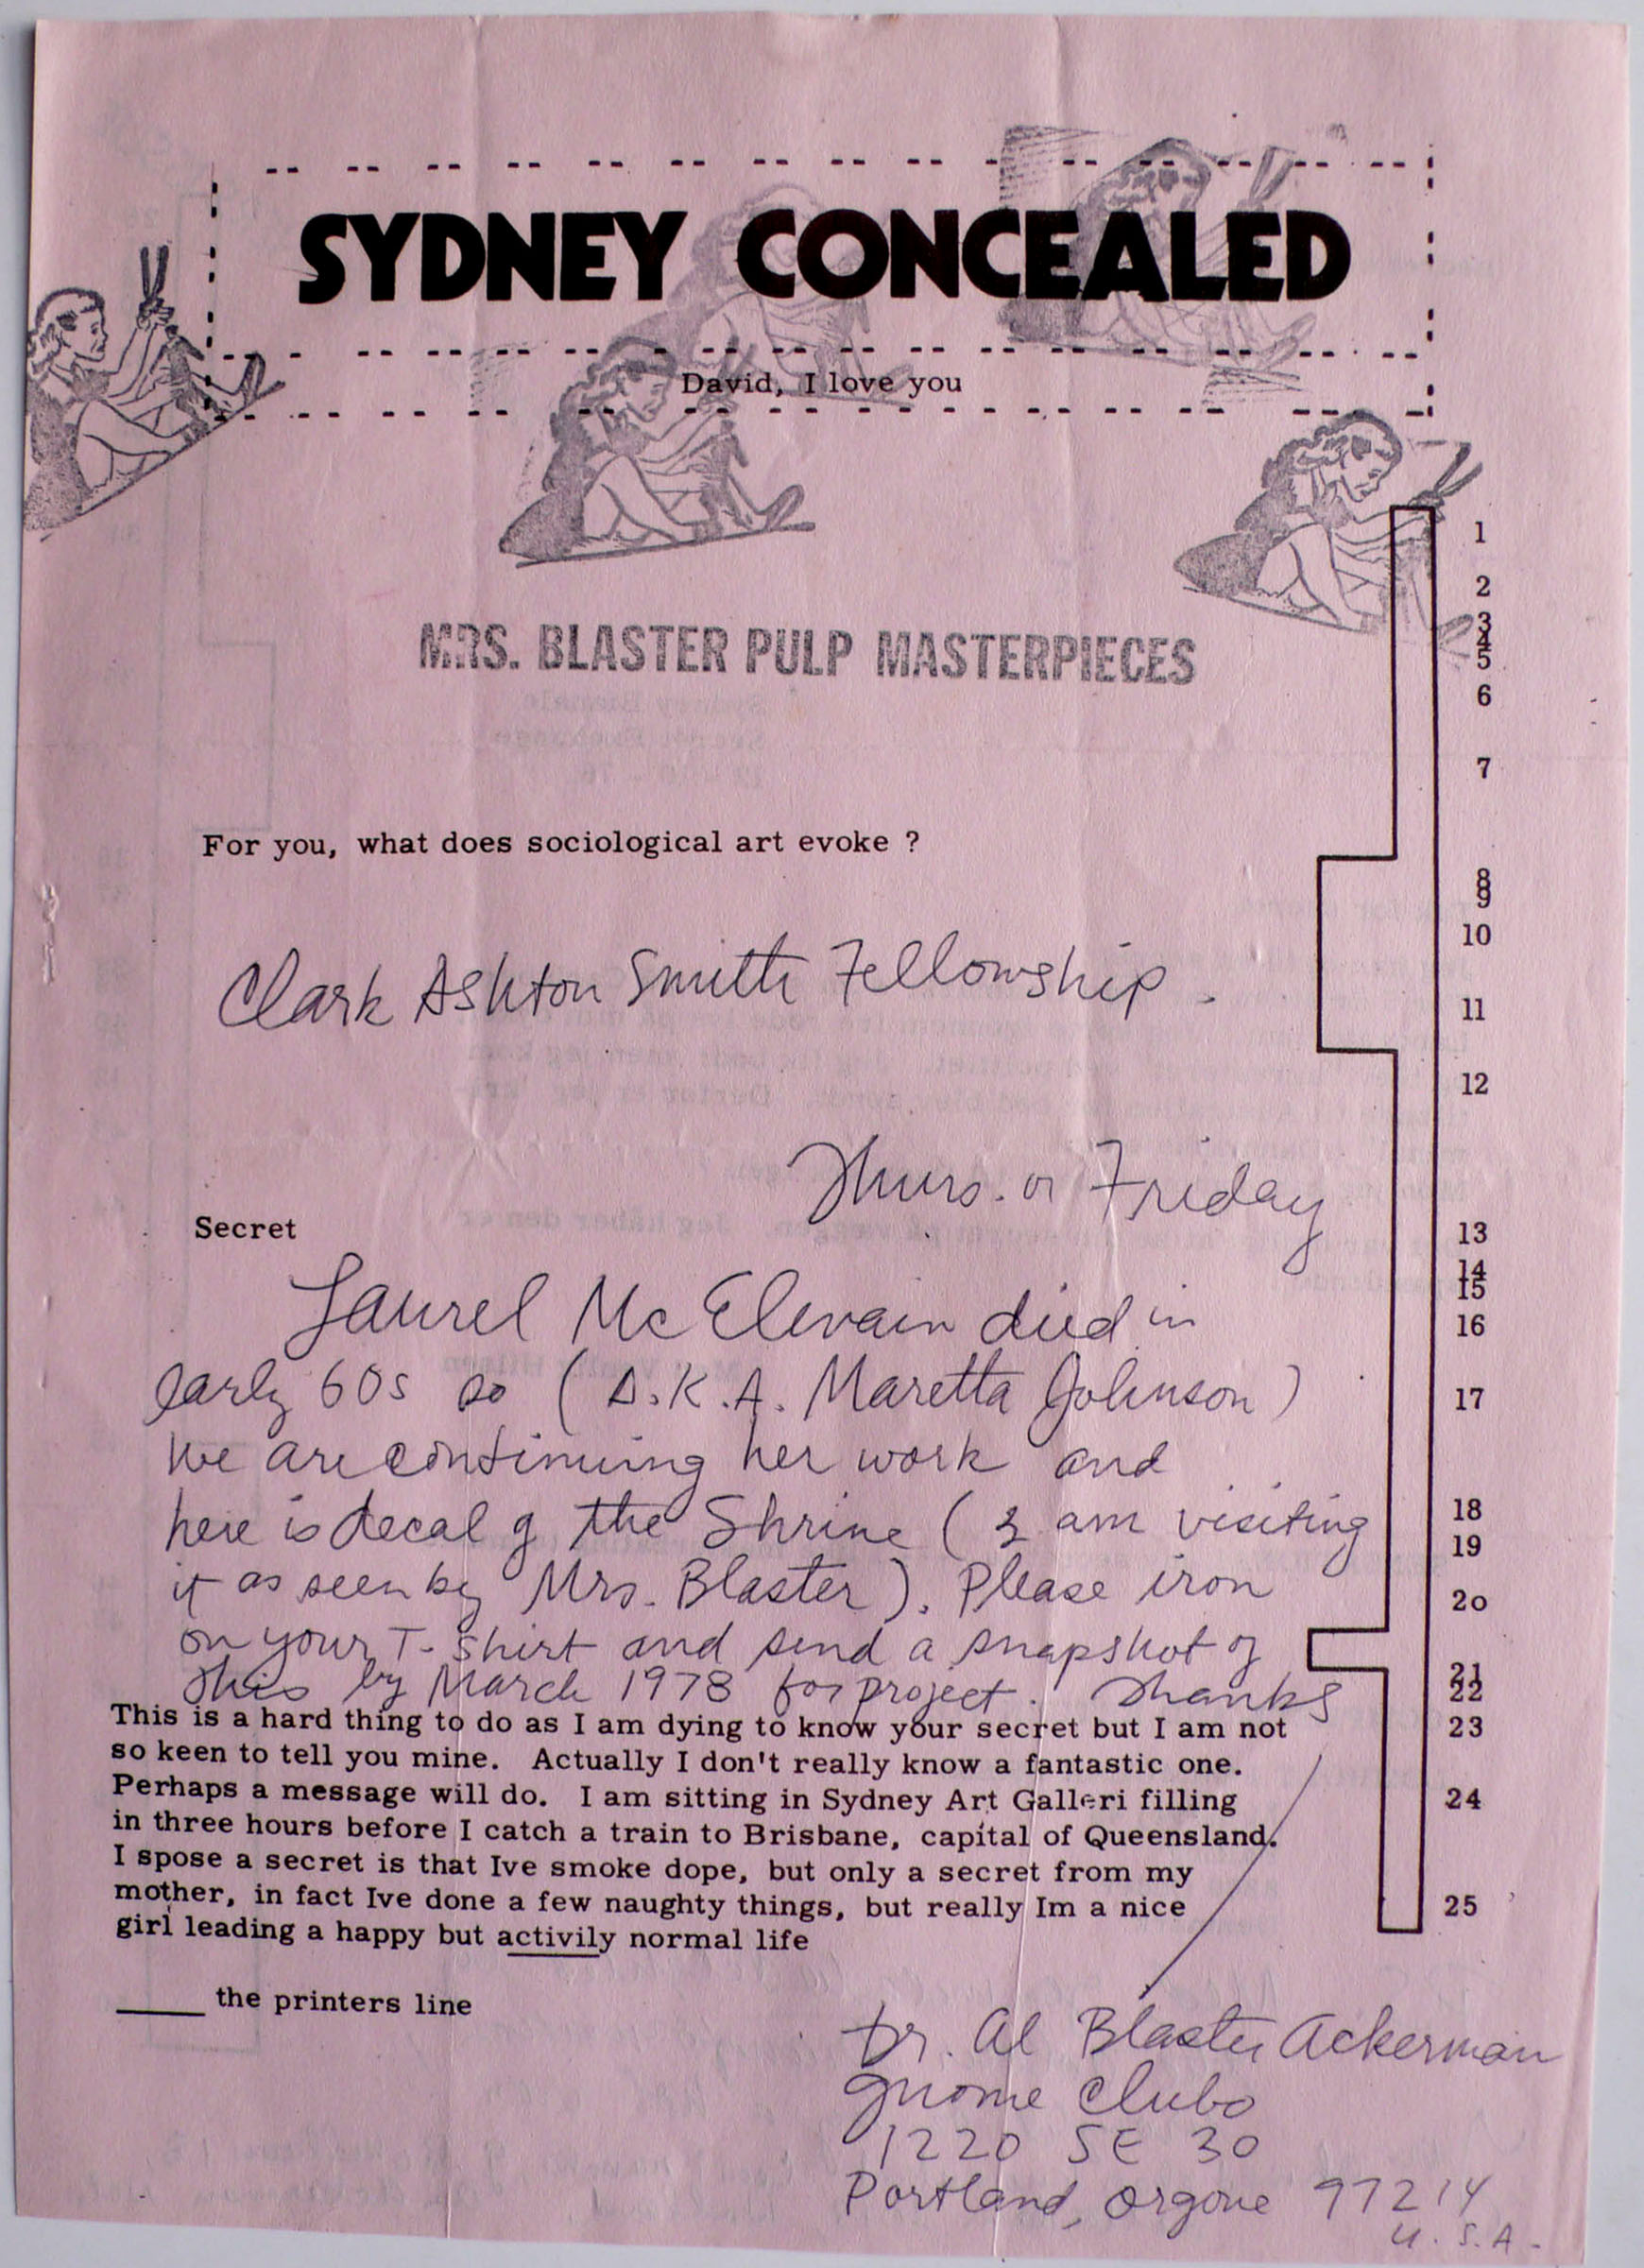 SYDNEY CONCEALED
David, I love you
1
2
3
4
5
MRS. BLASTER PULP MASTERPIECES
6
7
For you, what does sociological art evoke ?
8
9
10
Clark Ashton Smith Fellowship.
11
12
Thurs. or Friday
Secret
13
14
15
Laurel McElevain died in
16
early 60s so (A.K.A. Maretta Johnson)
17
we are continuing her work and
here is decal of the Shrine (& am visiting
18
19
it as seen by Mrs. Blaster). Please iron
20
on your T-shirt and send a snapshot of
this by March 1978 for project. Thanks
21
22
This is a hard thing to do as I am dying to know your secret but I am not
23
so keen to tell you mine. Actually I don't really know a fantastic one.
Perhaps a message will do. I am sitting in Sydney Art Galleri filling
24
in three hours before I catch a train to Brisbane, capital of Queensland.
I spose a secret is that Ive smoke dope, but only a secret from my
mother, in fact Ive done a few naughty things, but really Im a nice
25
girl leading a happy but activily normal life
the printers line
Dr. Al Blaster Ackerman
Gnome Clubo
1220 SE 30
Portland, Orgone 97214
U.S.A.